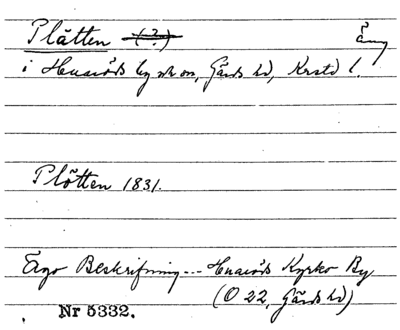 Plåtten (?) äng
i Huaröds by o sn, Gärds hd, Krstd l.
Plåtten 1831.
Ägo Beskrifning --- Huaröds Kyrko By
(O 22, Gärds hd)
Nr 5332.